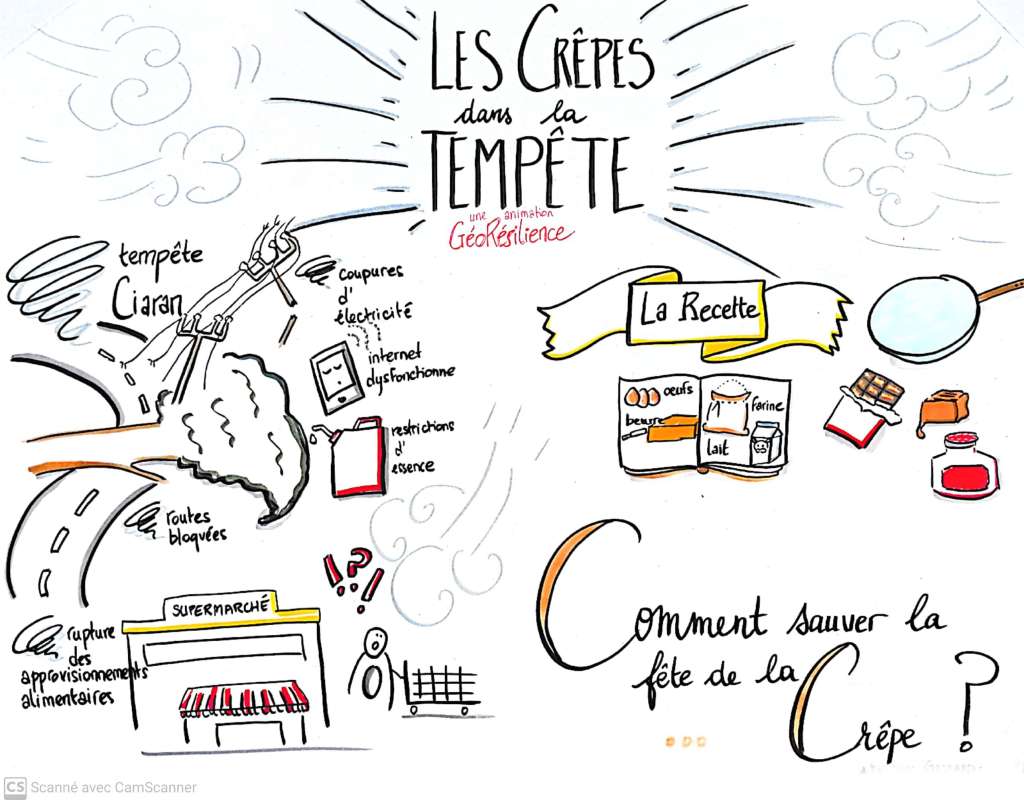 LES CRÊPES
dans la
TEMPÊTE
une animation
GéoRésilience
tempête
Ciaran
coupures
d'
électricité
internet
dysfonctionne
restrictions
d'
essence
routes
bloquées
rupture
des
approvisionnements
alimentaires
SUPERMARCHÉ
!?!
La Recette
oeufs
beurre
farine
lait
Comment sauver la
fête de la
Crêpe ?
...
CS Scanné avec CamScanner